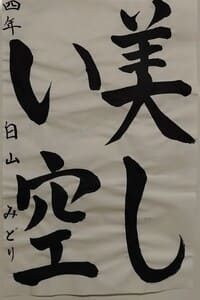 美し
い空
四年 白山 みどり